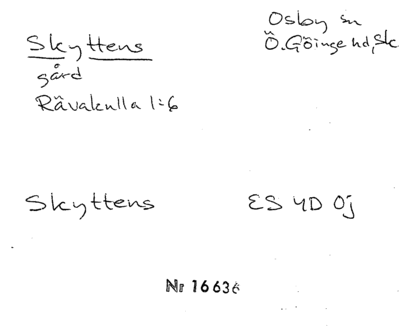 Osby sn
Skyttens
Ö.Göinge hd, Sk
gård
Råvakulla 1:6
Skyttens
ES 4D 0j
Nr 16636